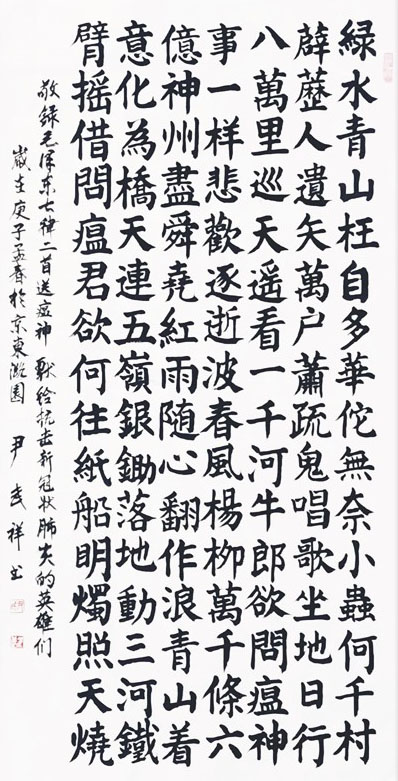 綠水青山枉自多華佗無奈小蟲何千村
薜藶人遺矢萬户蕭疏鬼唱歌坐地日行
八萬里巡天遥看一千河牛郎欲問瘟神
事一样悲歡逐逝波春風楊柳萬千條六
億神州盡舜堯紅雨随心翻作浪青山着
意化為橋天連五嶺銀鋤落地動三河鐵
臂摇借問瘟君欲何往紙船明燭照天燒
敬録毛澤东七律二首送瘟神 献给抗击新冠状肺炎的英雄们
歲在庚子孟春於京東潞園 尹武祥书